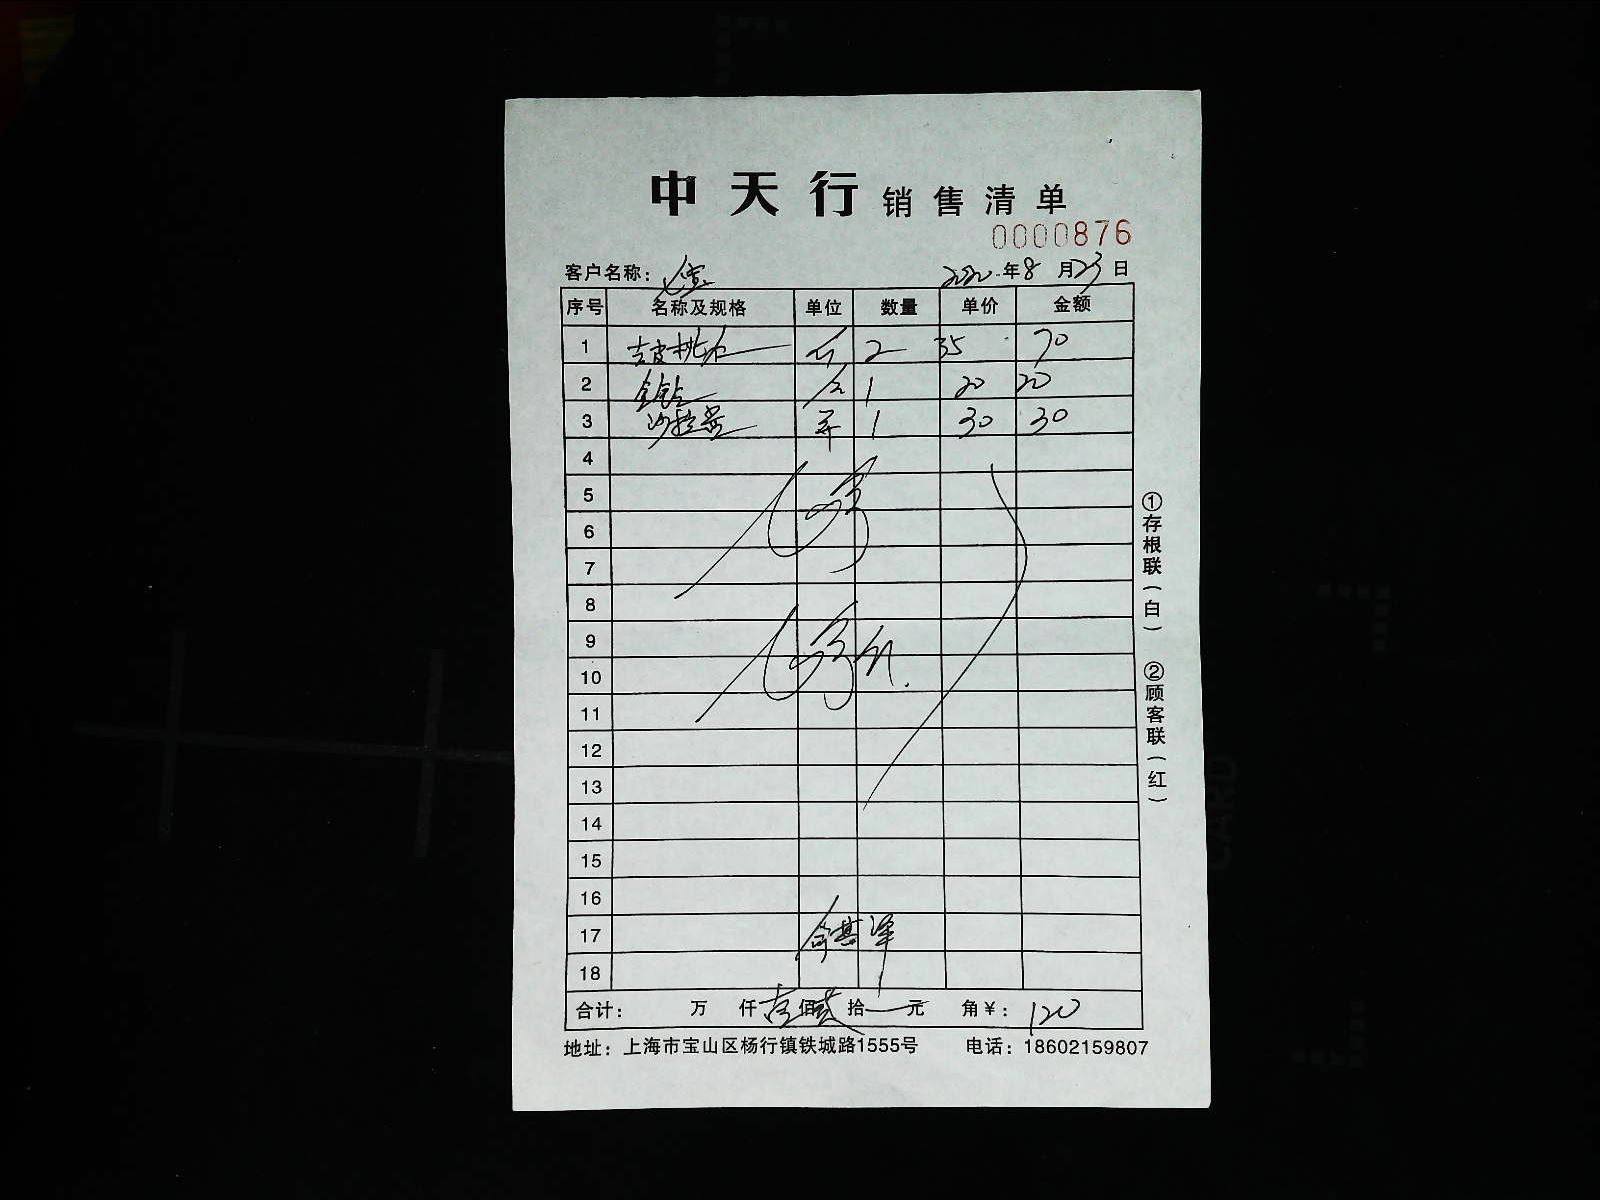 中天行 销售清单
0000876
客户名称： 2020年8月23日
序号 名称及规格 单位 数量 单价 金额
1 去皮桃仁 斤 2 35 70
2 1 20 20
3 沙拉酱 1 30 30
4
5
6
7
8
9
10
11
12
13
14
15
16
17
18
合计： 万 仟 壹佰贰拾 元 角￥：120
地址：上海市宝山区杨行镇铁城路1555号 电话：18602159807
①存根联（白） ②顾客联（红）